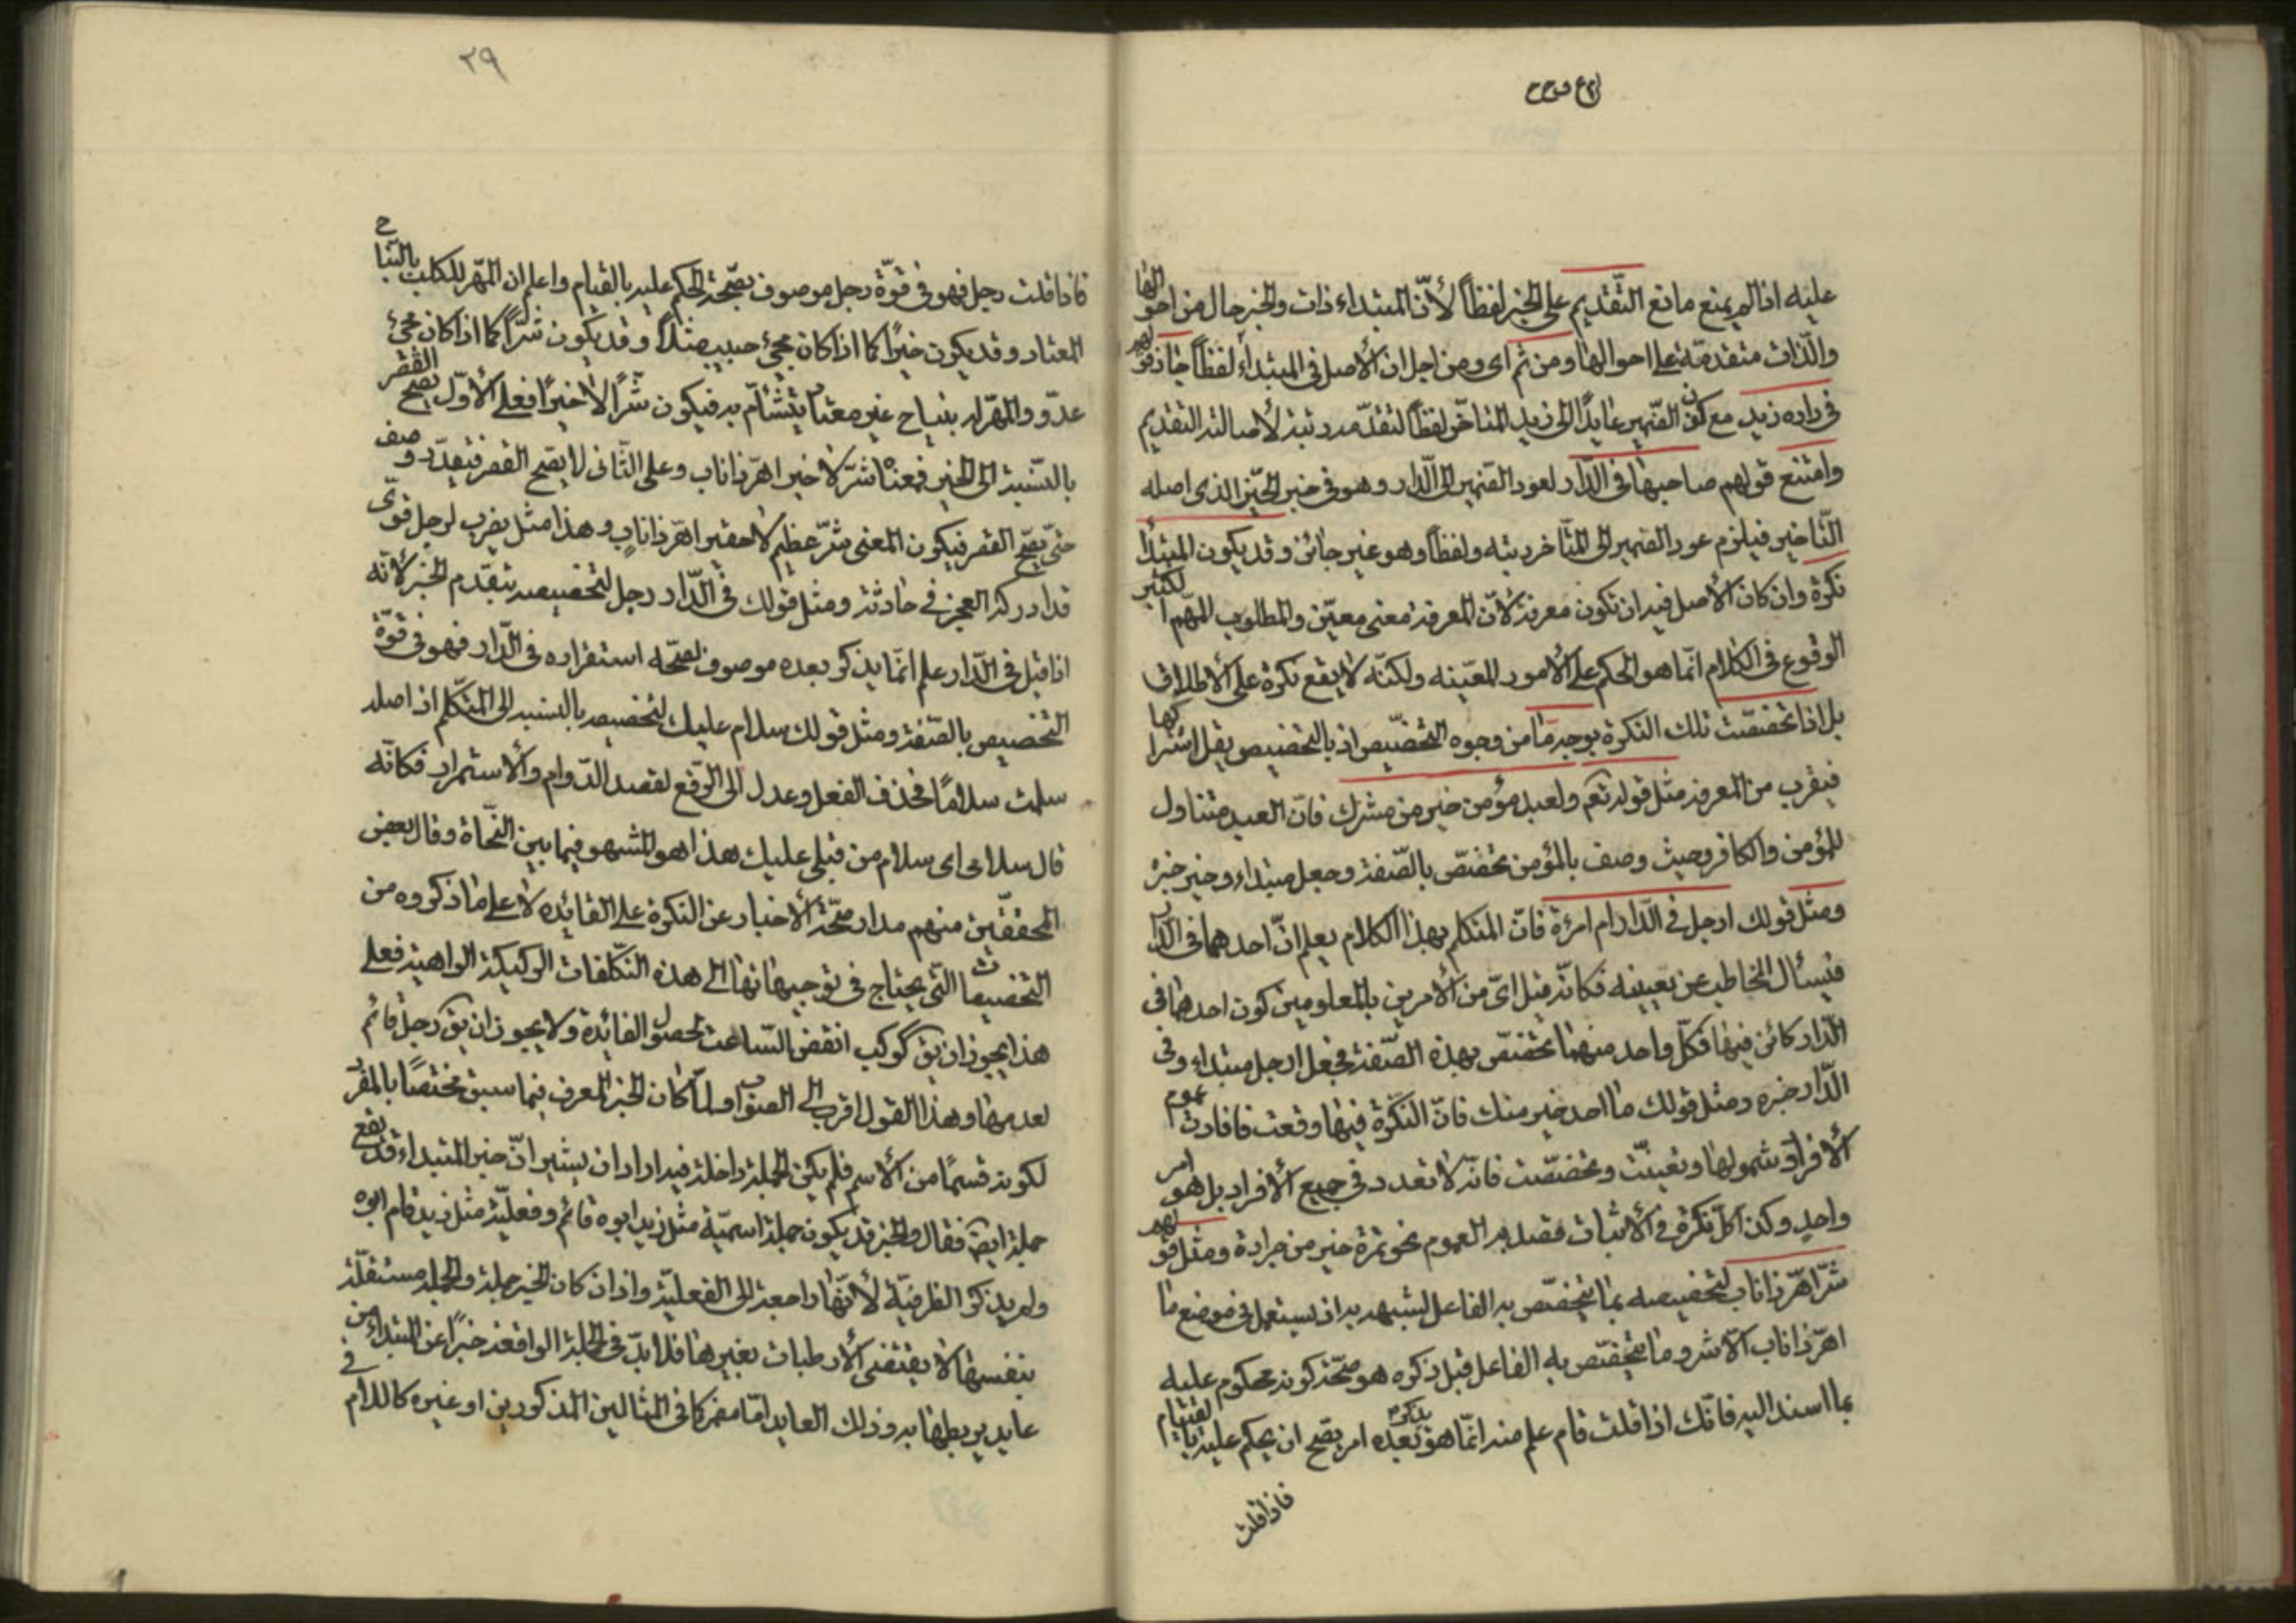 عليه اذا لم يمنع مانع التقديم على الخبر لفظاً لأنّ المبتداء ذات والخبر حال من احوالها
والذّات متقدمة على احوالها ومن ثم اى ومن اجل ان الأصل فى المبتداء لفظاً جاز قولهم
فى داره زيد مع كون الضّمير عايداً الى زيد المتاخّر لفظاً لتقدّمه رتبة لأصالته التقديم
وامتنع قولهم صاحبها فى الدّار لعود الضمير الى الدّار وهو فى خبر الخبر الذى اصله
التّاخير فيلزم عود الضمير الى المتأخر رتبه ولفظاً وهو غير جائز وقد يكون المبتدأ
نكرة وان كان الأصل فيه ان تكون معرفة لأنّ المعرفة معنى معيّن والمطلوب المهم الكثير
الوقوع فى الكلام انّما هو الحكم على الأمور المعيّنه ولكنّه لا يقع نكرة على الأطلاق
بل اذا تخصّصت تلك النكرة بوجه مّا من وجوه التخصّيص اذ بالتخصيص يقل اشتراكها
فيقرب من المعرفة مثل قوله تعم ولعبد مؤمن خير من مشرك فانّ العبد متناول
للمؤمن والكافر وحيث وصف بالمؤمن تخصّص بالصّفة وجعل مبتداء وخير خبره
ومثل قولك ارجل فى الدّار ام امرئة فانّ المتكلم بهذا الكلام يعلم انّ احدهما فى الدّار
فيسأل المخاطب عن تعيينه فكانّه قيل اىّ من الأمرين بالمعلومين كون احدهما فى
الدّار كائن فيها فكلّ واحد منهما تخصّص بهذه الصّفة فجعل ارجل مبتداء وفى
الدّار خبره ومثل قولك ما احد خير منك فانّ النكّرة فيها وقعت فافادت عموم
الأفراد وشمولها وتعيّنت وتخصّصت فانّه لا تعدد فى جميع الأفراد بل هو امر
واحد وكذا كلّ نكرة فى الأثبات قصد به العموم نحو تمرة خير من جرادة ومثل قولهم
شرّ اهرّ ذا ناب لتخصيصه بما يتخصّص به الفاعل لشبهه به اذ يستعمل فى موضع ما
اهرّ ذا ناب الّا شر وما يتخصّص به الفاعل قبل ذكره هو صحّة كونه محكوم عليه
بما اسند اليه فانّك اذا قلت قام علم منه انّما هو يذكر بعده امر يصّح ان يحكم عليه بالقيام
فاذا قلت
٢٩
فاذا قلت رجل فهو فى قوّة رجل موصوف بصّحة الحكم عليه بالقيام واعلم ان المهّر للكلب بالنّباح
المعتاد وقد يكون خيرًا كما اذا كان مجئ حبيب مثلاً وقد يكون شرّاً كما اذا كان مجئ
عدّو والمهّر له بنباح غير معتاد يتشأّم به فيكون شّرًا لا خيرًا فعلى الأوّل يصح القصر
بالنّسبة الى الخير فمعناه شرّ لا خير اهرّ ذا ناب وعلى الثّانى لا يصّح القصر فيقدّر وصف
حتى يصّح القصر فيكون المعنى شّر عظيم لا حقير اهرّ ذا نابٍ وهذا مثل يضرب لرجل قوّى
قد ادركه العجز فى حادثة ومثل قولك فى الدّار رجل لتخصيصه بتقدّم الخبر لأنّه
اذا قيل فى الدّار علم انّما يذكر بعده موصوف بصحّه استقراره فى الدّار فهو فى قوّة
التخصيص بالصّفة ومثل قولك سلام عليك لتخصيصه بالنسبه الى المتكلّم اذ اصله
سلمت سلامًا فحذف الفعل وعدل الى الرّفع لقصد الدّوام والأستمرار فكانّه
قال سلامى اى سلام من قبلى عليك هذا هو المشهور فيما بين النّحاة وقال بعض
المحققّين منهم مدار صحّة الأخبار عن النكرة على الفائده لا على ما ذكروه من
التخصيصات التّى يحتاج فى توجيهاتها الى هذه التّكلّفات الركيكة الواهية فعلى
هذا يجوز ان يق كوكب انقض السّاعت لحصول الفائدة ولا يجوز ان يق رجل قائم
لعدمها وهذا القول اقرب الى الصواب ولمّا كان الخبر المعرف فيما سبق مختصًا بالمفرد
لكونه قسمًا من الأسم فلم يكن الجملة داخلة فيه اراد ان يشير انّ خبر المبتداء قد يقع
جملة ايضً فقال والخبر قد يكون جملة اسميّة مثل زيد ابوه قائم وفعليّة مثل زيد قام ابوه
ولم يذكر الظرفيّة لأنّها راجعة الى الفعليّة واذا كان الخبر جملة والجملة مستقلّة
بنفسها لا يقتضى الأرطبات بغيرها فلا بدّ فى الجملة الواقعة خبرًا عن المبتداء من
عايد يربطها به وذلك العايد امّا ضمير كما فى المثالين المذكورين او غيره كاللام فى